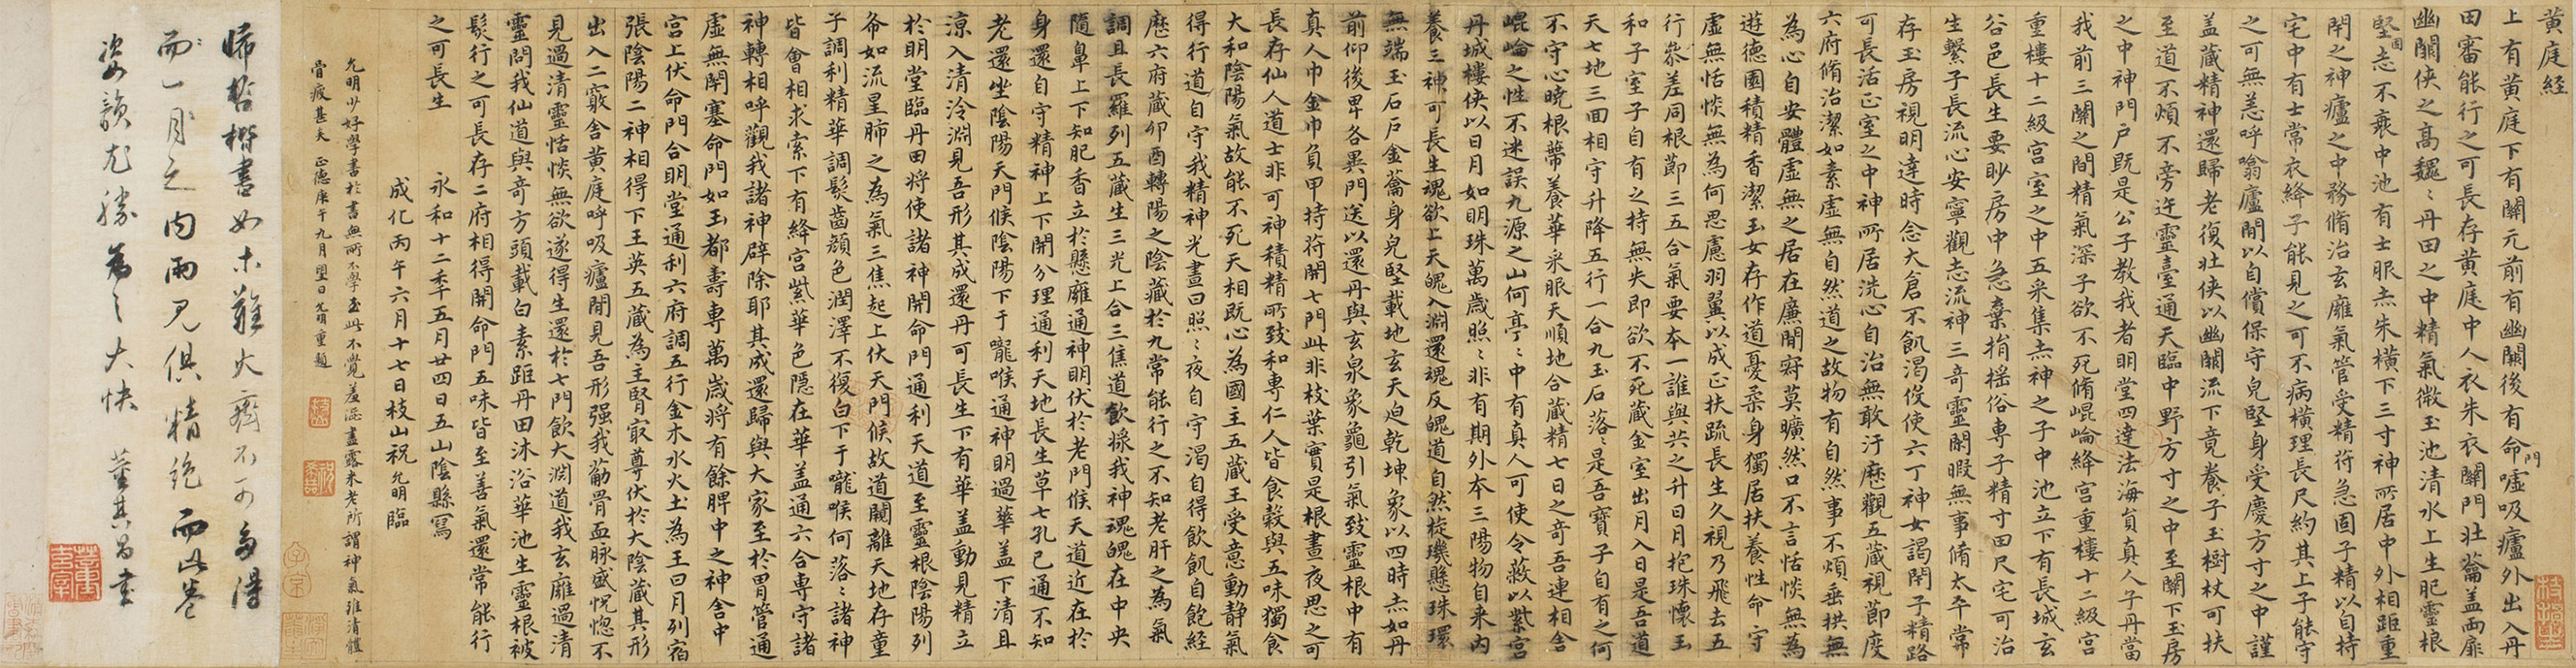 黄庭経
上有黄庭下有關元前有幽闕後有命門嘘吸廬外出入丹
田審能行之可長存黄庭中人衣朱衣關門壮籥盖兩扉
幽闕侠之髙魏〻丹田之中精氣微玉池清水上生肥靈根
堅固志不衰中池有士服赤朱横下三寸神所居中外相距重
閇之神廬之中務脩治玄廱氣管受精符急固子精以自持
宅中有士常衣絳子能見之可不病横理長尺約其上子能守
之可無恙呼噏廬間以自償保守皃堅身受慶方寸之中謹
盖藏精神還歸老復壮侠以幽闕流下竟養子玉樹杖可扶
至道不煩不旁迕靈臺通天臨中野方寸之中至關下玉房
之中神門户既是公子教我者明堂四達法海貟真人子丹當
我前三關之間精氣深子欲不死脩崐崘絳宫重樓十二級宫
重樓十二級宫室之中五采集赤神之子中池立下有長城玄
谷邑長生要眇房中急棄捐揺俗専子精寸田尺宅可治
生繫子長流心安寧觀志流神三竒靈閑暇無事脩太平常
存玉房視明達時念大倉不飢渴伇使六丁神女謁閇子精路
可長活正室之中神所居洗心自治無敢汙歴觀五藏視節度
六府脩治潔如素虚無自然道之故物有自然事不煩垂拱無
為心自安體虚無之居在廉間寂莫曠然口不言恬惔無為
遊德園積精香潔玉女存作道憂柔身獨居扶養性命守
虚無恬惔無為何思慮羽翼以成正扶疏長生久視乃飛去五
行參差同根節三五合氣要本一誰與共之升日月抱珠懷玉
和子室子自有之持無失即欲不死藏金室出月入日是吾道
天七地三囬相守升降五行一合九玉石落〻是吾寶子自有之何
不守心曉根蔕養華采服天順地合藏精七日之竒吾連相合
崐崘之性不迷誤九源之山何亭〻中有真人可使令蔽以紫宫
丹城樓侠以日月如明珠萬歳照〻非有期外本三陽物自来内
養三神可長生魂欲上天魄入淵還魂反魄道自然琁璣懸珠環
無端玉石戸金籥身皃堅載地玄天迫乾坤象以四時赤如丹
前仰後卑各異門送以還丹與玄泉象龜引氣致靈根中有
真人巾金巾負甲持符開七門此非枝葉實是根晝夜思之可
長存仙人道士非可神積精所致和専仁人皆食榖與五味獨食
大和陰陽氣故能不死天相既心為國主五藏王受意動静氣
得行道自守我精神光晝日照〻夜自守渴自得飲飢自飽經
歴六府藏卯酉轉陽之陰藏於九常能行之不知老肝之為氣
調且長羅列五藏生三光上合三焦道飲㨾我神魂魄在中央
隨鼻上下知肥香立於懸廱通神明伏於老門候天道近在於
身還自守精神上下開分理通利天地長生草七孔已通不知
老還坐陰陽天門候陰陽下于嚨喉通神明過華盖下清且
涼入清泠淵見吾形其成還丹可長生下有華盖動見精立
於明堂臨丹田将使諸神開命門通利天道至靈根陰陽列
布如流星肺之為氣三焦起上伏天門候故道闚離天地存童
子調利精華調髮齒顔色潤澤不復白下于嚨喉何落〻諸神
皆會相求索下有絳宫紫華色隠在華盖通六合専守諸
神轉相呼觀我諸神辟除耶其成還歸與大家至於胃管通
虚無閇塞命門如玉都壽専萬歳将有餘脾中之神舎中
宫上伏命門合明堂通利六府調五行金木水火土為王日月列宿
張陰陽二神相得下玉英五藏為主腎㝡尊伏於大陰藏其形
出入二竅舎黄庭呼吸廬間見吾形强我觔骨血脉盛怳惚不
見過清靈恬惔無欲遂得生還於七門飲大淵道我玄廱過清
靈問我仙道與竒方頭載白素距丹田沐浴華池生靈根被
髮行之可長存二府相得開命門五味皆至善氣還常能行
之可長生
永和十二季五月廿四日五山陰縣寫
成化丙午六月十七日枝山祝允明臨
允明少好學書於書無所不學至此不覺羞澁盡露米老所謂神氣雖清體
骨疲甚矣 正德庚午九月望日允明重題
枝指生
希哲楷書如木難火齊不可多得
而一月之内兩見俱精絶而此卷
姿韻尤勝為之大快 董其昌書